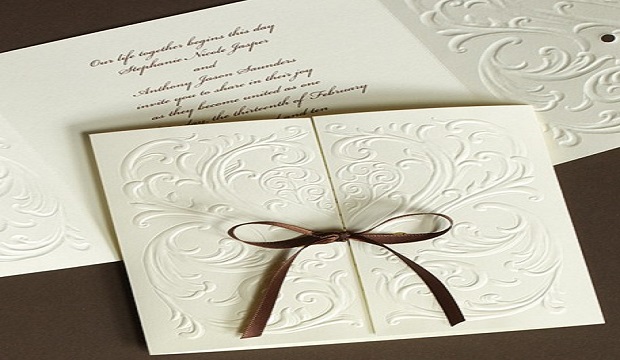 Our life together begins this day
Stephanie Nicole Jasper
and
Anthony Jason Saunders
invite you to share in their joy
as they become united as one
the thirteenth of February
and ten